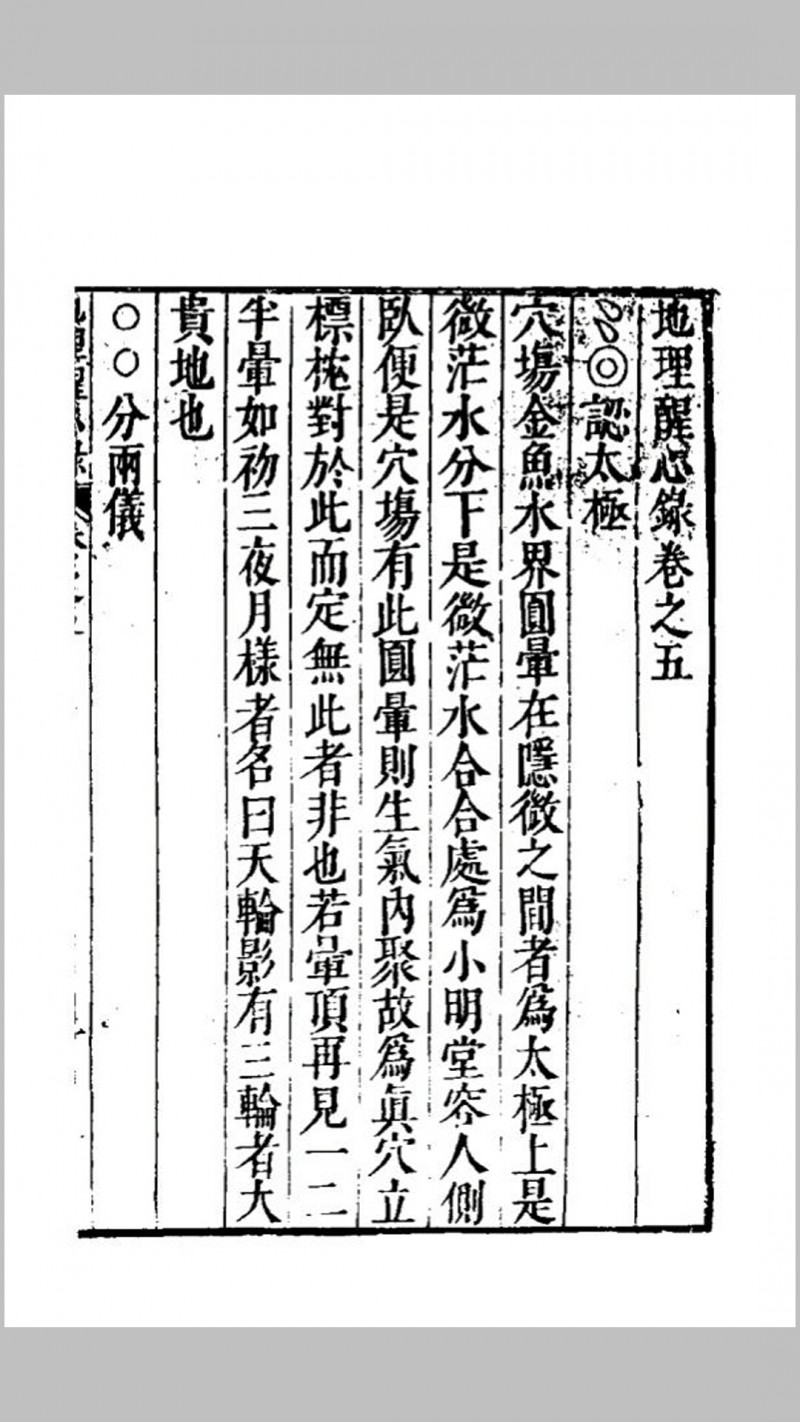 地理醒心錄卷之五
◎認太極
穴塲金魚水界圓暈在隱微之間者爲太極上是
微茫水分下是微茫水合合處爲小明堂容人側
臥便是穴塲有此圓暈則生氣內聚故爲眞穴立
標樁對於此而定無此者非也若暈頂再見一二
半暈如初三夜月樣者名曰天輪影有三輪者大
貴地也
○○分兩儀